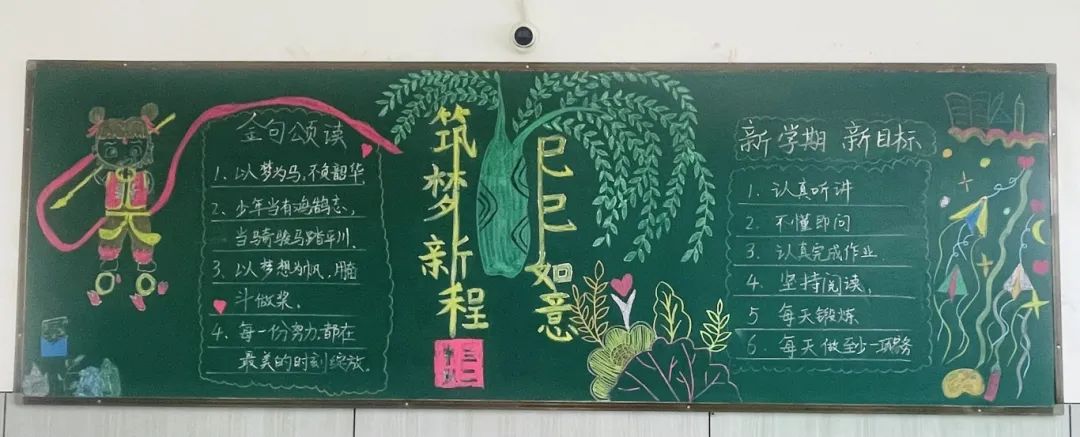 金句颂读
1. 以梦为马,不负韶华
2、少年当有鸿鹄志,
当骑骏马踏平川、
3. 以梦想为帆、用
斗做桨、
4、每一份努力,都在
最美的时刻绽放、
筑梦新程
巳巳如意
新学期 新目标
1. 认真听讲
2. 不懂即问
3. 认真完成作业
4. 坚持阅读、
5 每天锻炼
6. 每天做至少一项务